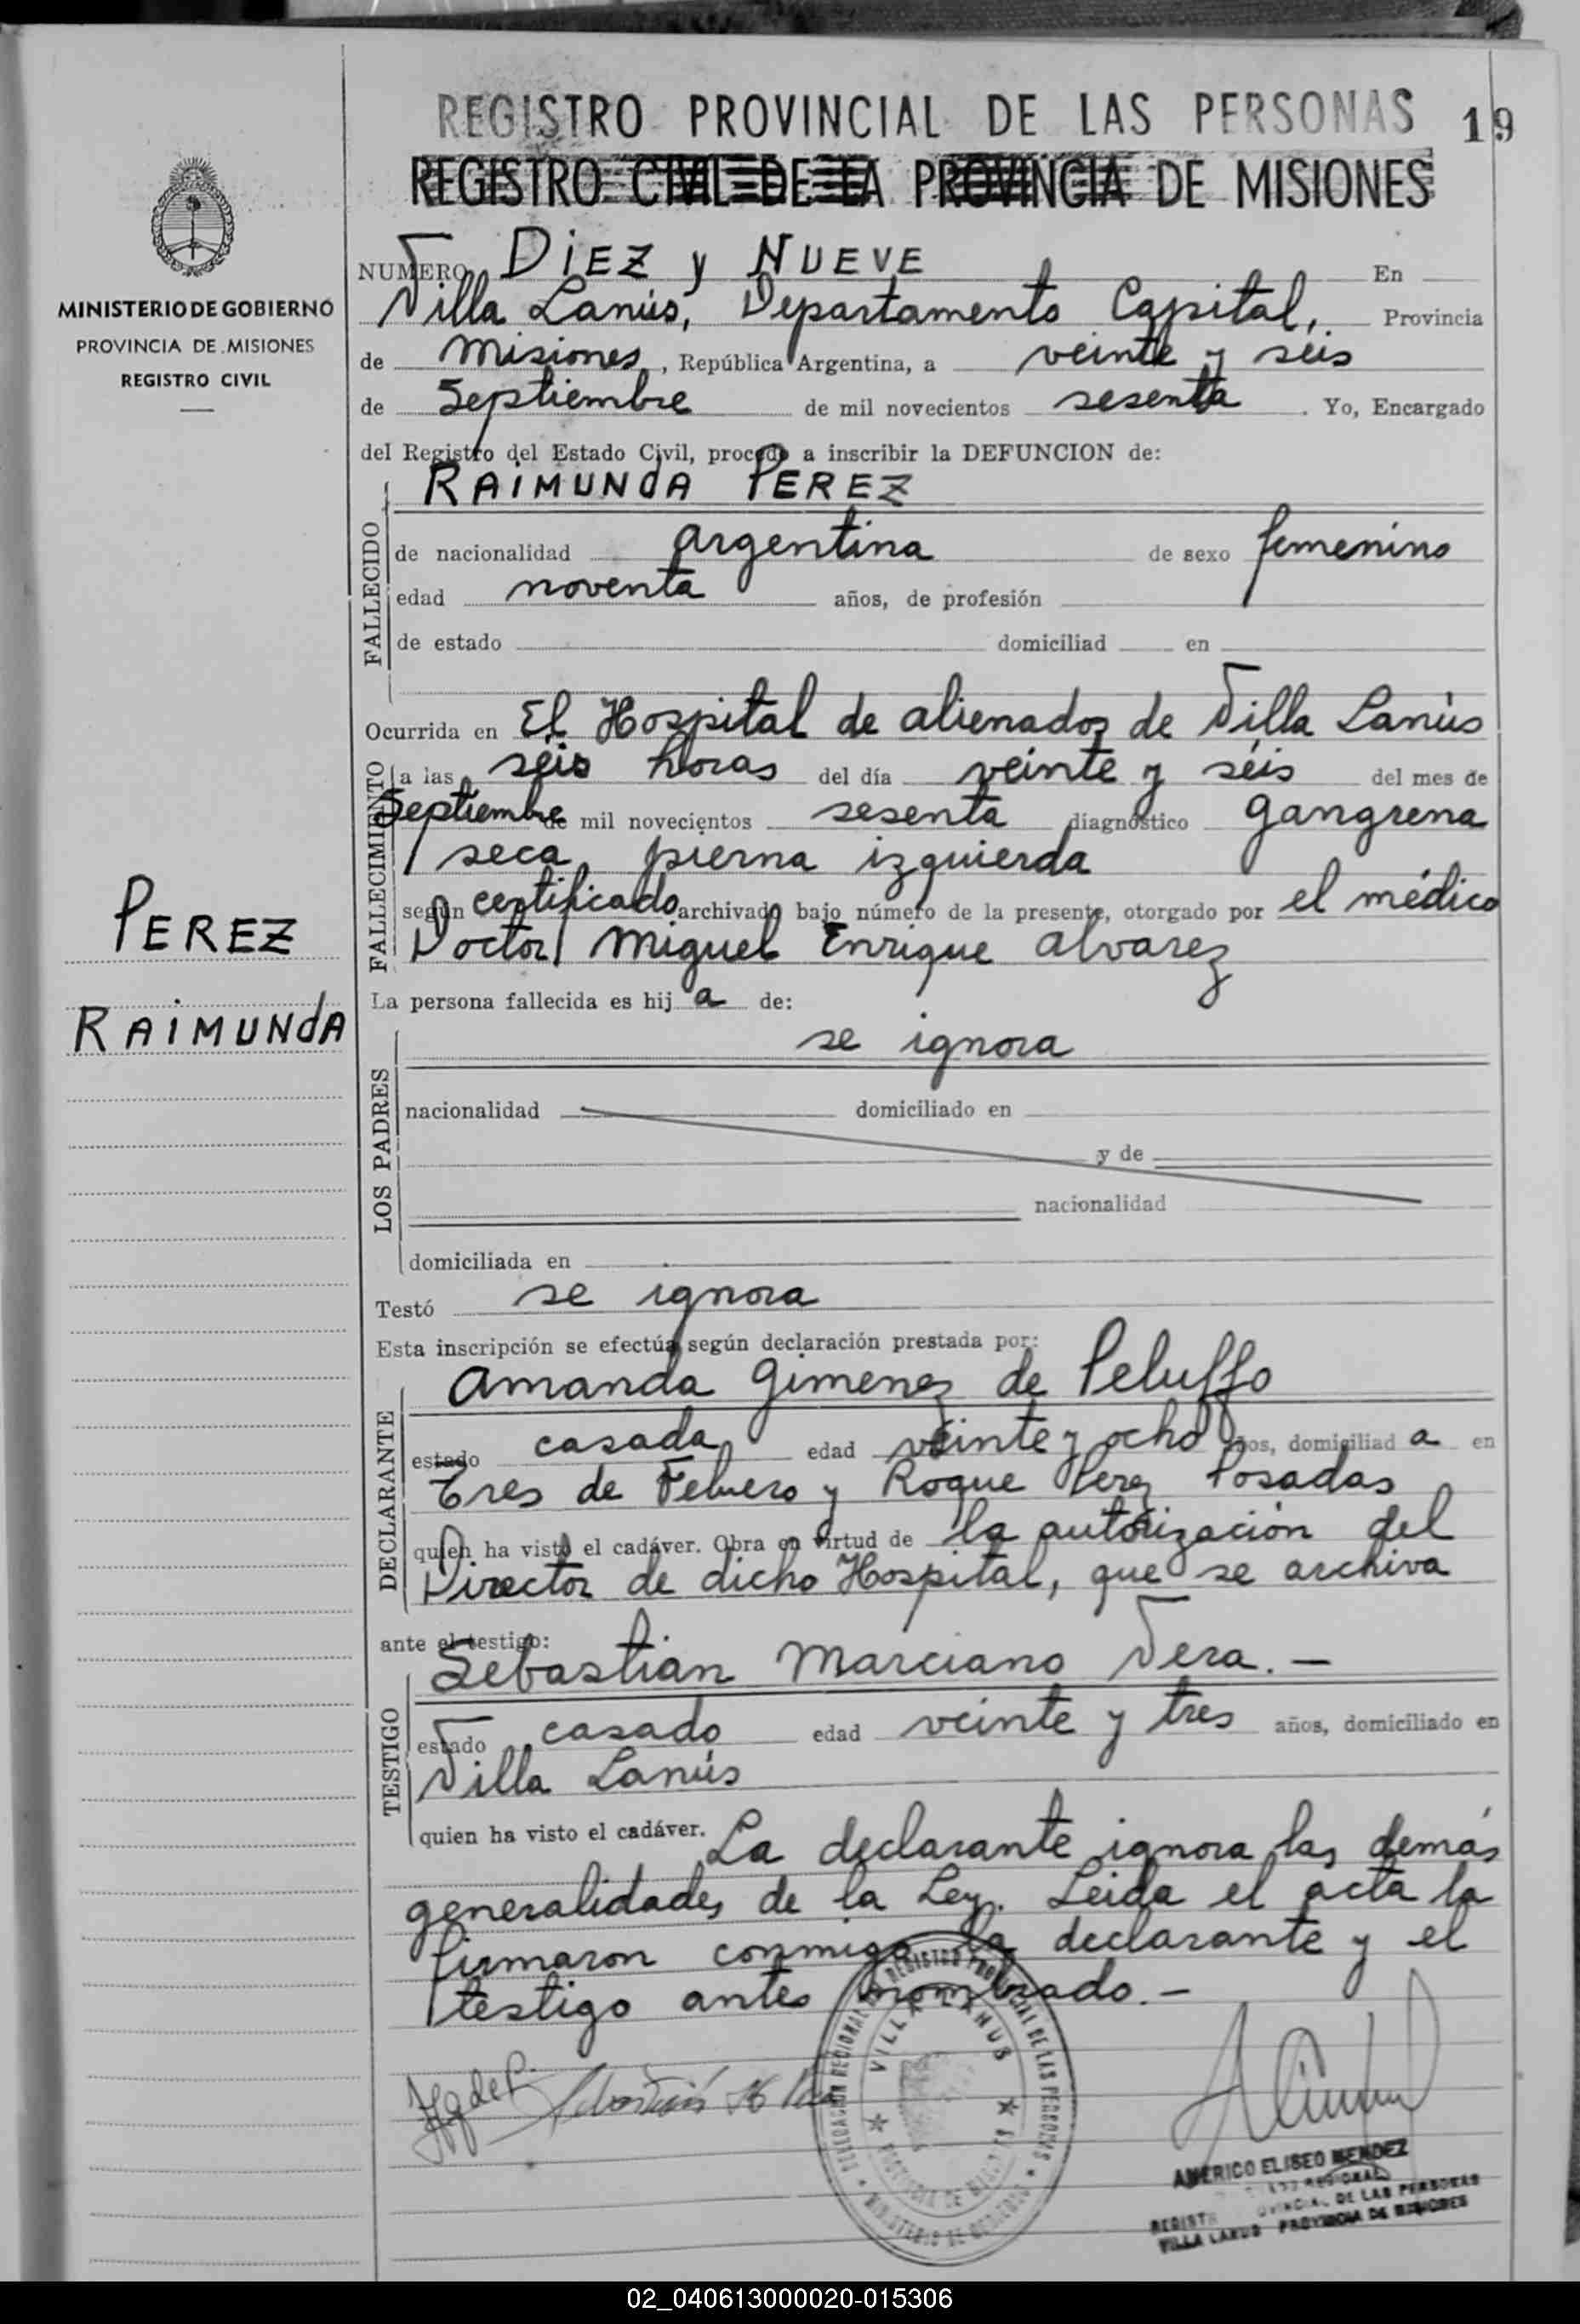 REGISTRO PROVINCIAL DE LAS PERSONAS 19
REGISTRO CIVIL DE LA PROVINCIA DE MISIONES
MINISTERIO DE GOBIERNO
PROVINCIA DE MISIONES
REGISTRO CIVIL
PEREZ
RAIMUNdA
NUMERO DiEZ y NUEVE En
Villa Lanús, Departamento Capital, Provincia
de Misiones, República Argentina, a veinte y seis
de Septiembre de mil novecientos sesenta. Yo, Encargado
del Registro del Estado Civil, procedo a inscribir la DEFUNCION de:
RAiMUNdA PEREZ
FALLECIDO
de nacionalidad argentina de sexo femenino
edad noventa años, de profesión
de estado domiciliad en
Ocurrida en El Hospital de alienados de Villa Lanús
FALLECIMIENTO
a las séis horas del día veinte y séis del mes de
Septiembre de mil novecientos sesenta diagnóstico gangrena
seca pierna izquierda
según certificado archivado bajo número de la presente, otorgado por el médico
Doctor Miguel Enrique Alvarez
La persona fallecida es hij a de:
LOS PADRES
se ignora
nacionalidad domiciliado en
y de
nacionalidad
domiciliada en
Testó se ignora
Esta inscripción se efectúa según declaración prestada por:
DECLARANTE
Amanda Gimenez de Peluffo
estado casada edad veinte y ocho años, domiciliad a en
Tres de Febrero y Roque Perez Posadas
quien ha visto el cadáver. Obra en virtud de la autorización del
Director de dicho Hospital, que se archiva
ante el testigo:
TESTIGO
Sebastian Marciano Vera.—
estado casado edad veinte y tres años, domiciliado en
Villa Lanús
quien ha visto el cadáver. La declarante ignora las demás
generalidades de la Ley. Leida el acta la
firmaron conmigo la declarante y el
testigo antes nombrado.—
DELEGACION REGIONAL DEL REGISTRO PROVINCIAL DE LAS PERSONAS
VILLA LANUS
PROVINCIA DE MISIONES
MINISTERIO DE GOBIERNO
AMERICO ELISEO MENDEZ
REGIONAL
PROVINCIAL DE LAS PERSONAS
VILLA LANUS PROVINCIA DE MISIONES
02_040613000020-015306